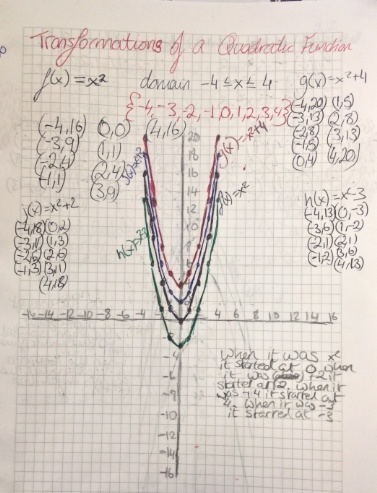 Transformations of a Quadratic Function
f(x) = x² domain -4 ≤ x ≤ 4 g(x) = x²+4
{-4,-3,-2,-1,0,1,2,3,4}
(-4,16) (0,0) (4,16)
(-3,9) (1,1)
(-2,4) (2,4)
(-1,1) (3,9)
(-4,20) (1,5)
(-3,13) (2,8)
(-2,8) (3,13)
(-1,5) (4,20)
(0,4)
g(x)=x²+4
f(x)=x²
j(x)=x²+2
(-4,18) (0,2)
(-3,11) (1,3)
(-2,6) (2,6)
(-1,3) (3,11)
(4,18)
h(x)=x²-3
(-4,13) (0,-3)
(-3,6) (1,-2)
(-2,1) (2,1)
(-1,-2) (3,6)
(4,13)
20
18
16
14
12
10
-16 -14 -12 -10 -8 -6 -4 4 6 8 10 12 14 16
-4
-6
-8
-10
-12
-14
-16
When it was x²
it started at 0, when
it was +2 it
started at 2. when it
was +4 it started at
4. when it was -3
it started at -3